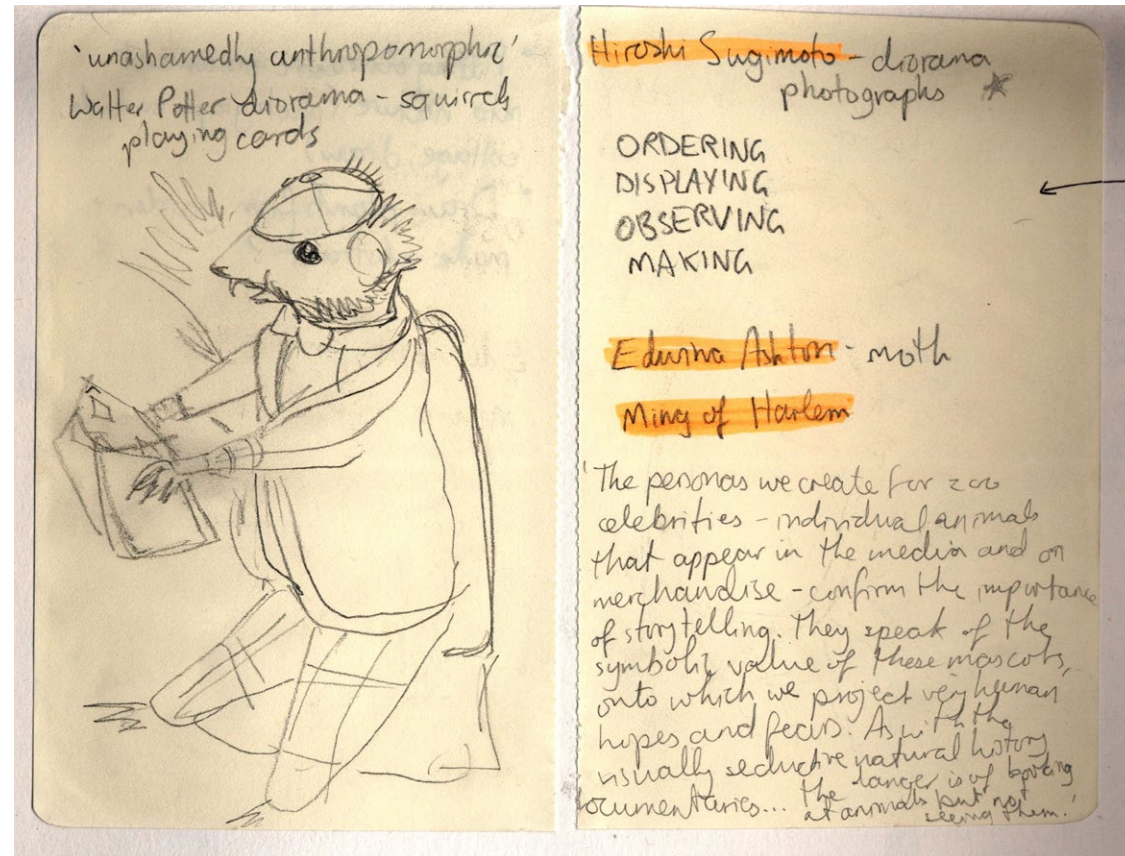 'unashamedly anthropomorphic'
Walter Potter diorama - squirrels
playing cards
Hiroshi Sugimoto - diorama
photographs
ORDERING
DISPLAYING
OBSERVING
MAKING
Edwina Ashton - moth
Ming of Harlem
'The personas we create for zoo
celebrities - individual animals
that appear in the media and on
merchandise - confirm the importance
of storytelling. They speak of the
symbolic value of these mascots,
onto which we project very human
hopes and fears. As with the
visually seductive natural history
documentaries... the danger is of looking
at animals but not
seeing them.'